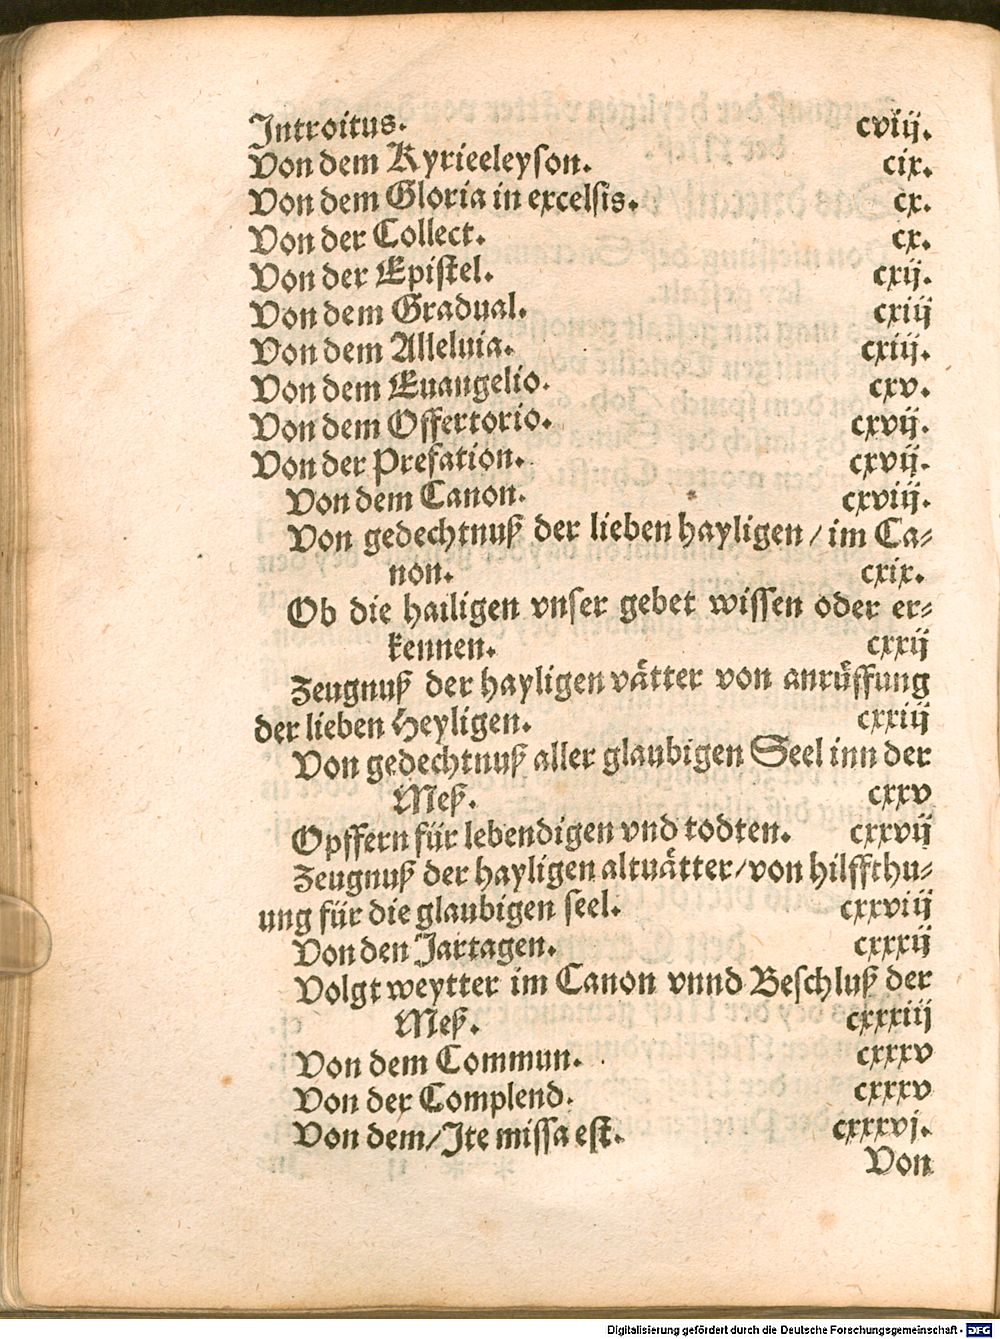 Introitus. cviij.
Von dem Kyrieeleyson. cix.
Von dem Gloria in excelsis. cx.
Von der Collect. cx.
Von der Epistel. cxij.
Von dem Gradual. cxiij
Von dem Alleluia. cxiij.
Von dem Euangelio. cxv.
Von dem Offertorio. cxvij.
Von der Prefation. cxvij.
Von dem Canon. cxviij.
Von gedechtnuß der lieben hayligen / im Ca-
non. cxix.
Ob die hailigen vnser gebet wissen oder er-
kennen. cxxij
Zeugnuß der hayligen vätter von anrüffung
der lieben Heyligen. cxxiij
Von gedechtnuß aller glaubigen Seel inn der
Meß. cxxv
Opffern für lebendigen vnd todten. cxxvij
Zeugnuß der hayligen altuätter/von hilffthu-
ung für die glaubigen seel. cxxviij
Von den Jartagen. cxxxij
Volgt weytter im Canon vnnd Beschluß der
Meß. cxxxiij
Von dem Commun. cxxxv
Von der Complend. cxxxv
Von dem/Ite missa est. cxxxvj.
Von
Digitalisierung gefördert durch die Deutsche Forschungsgemeinschaft - DFG